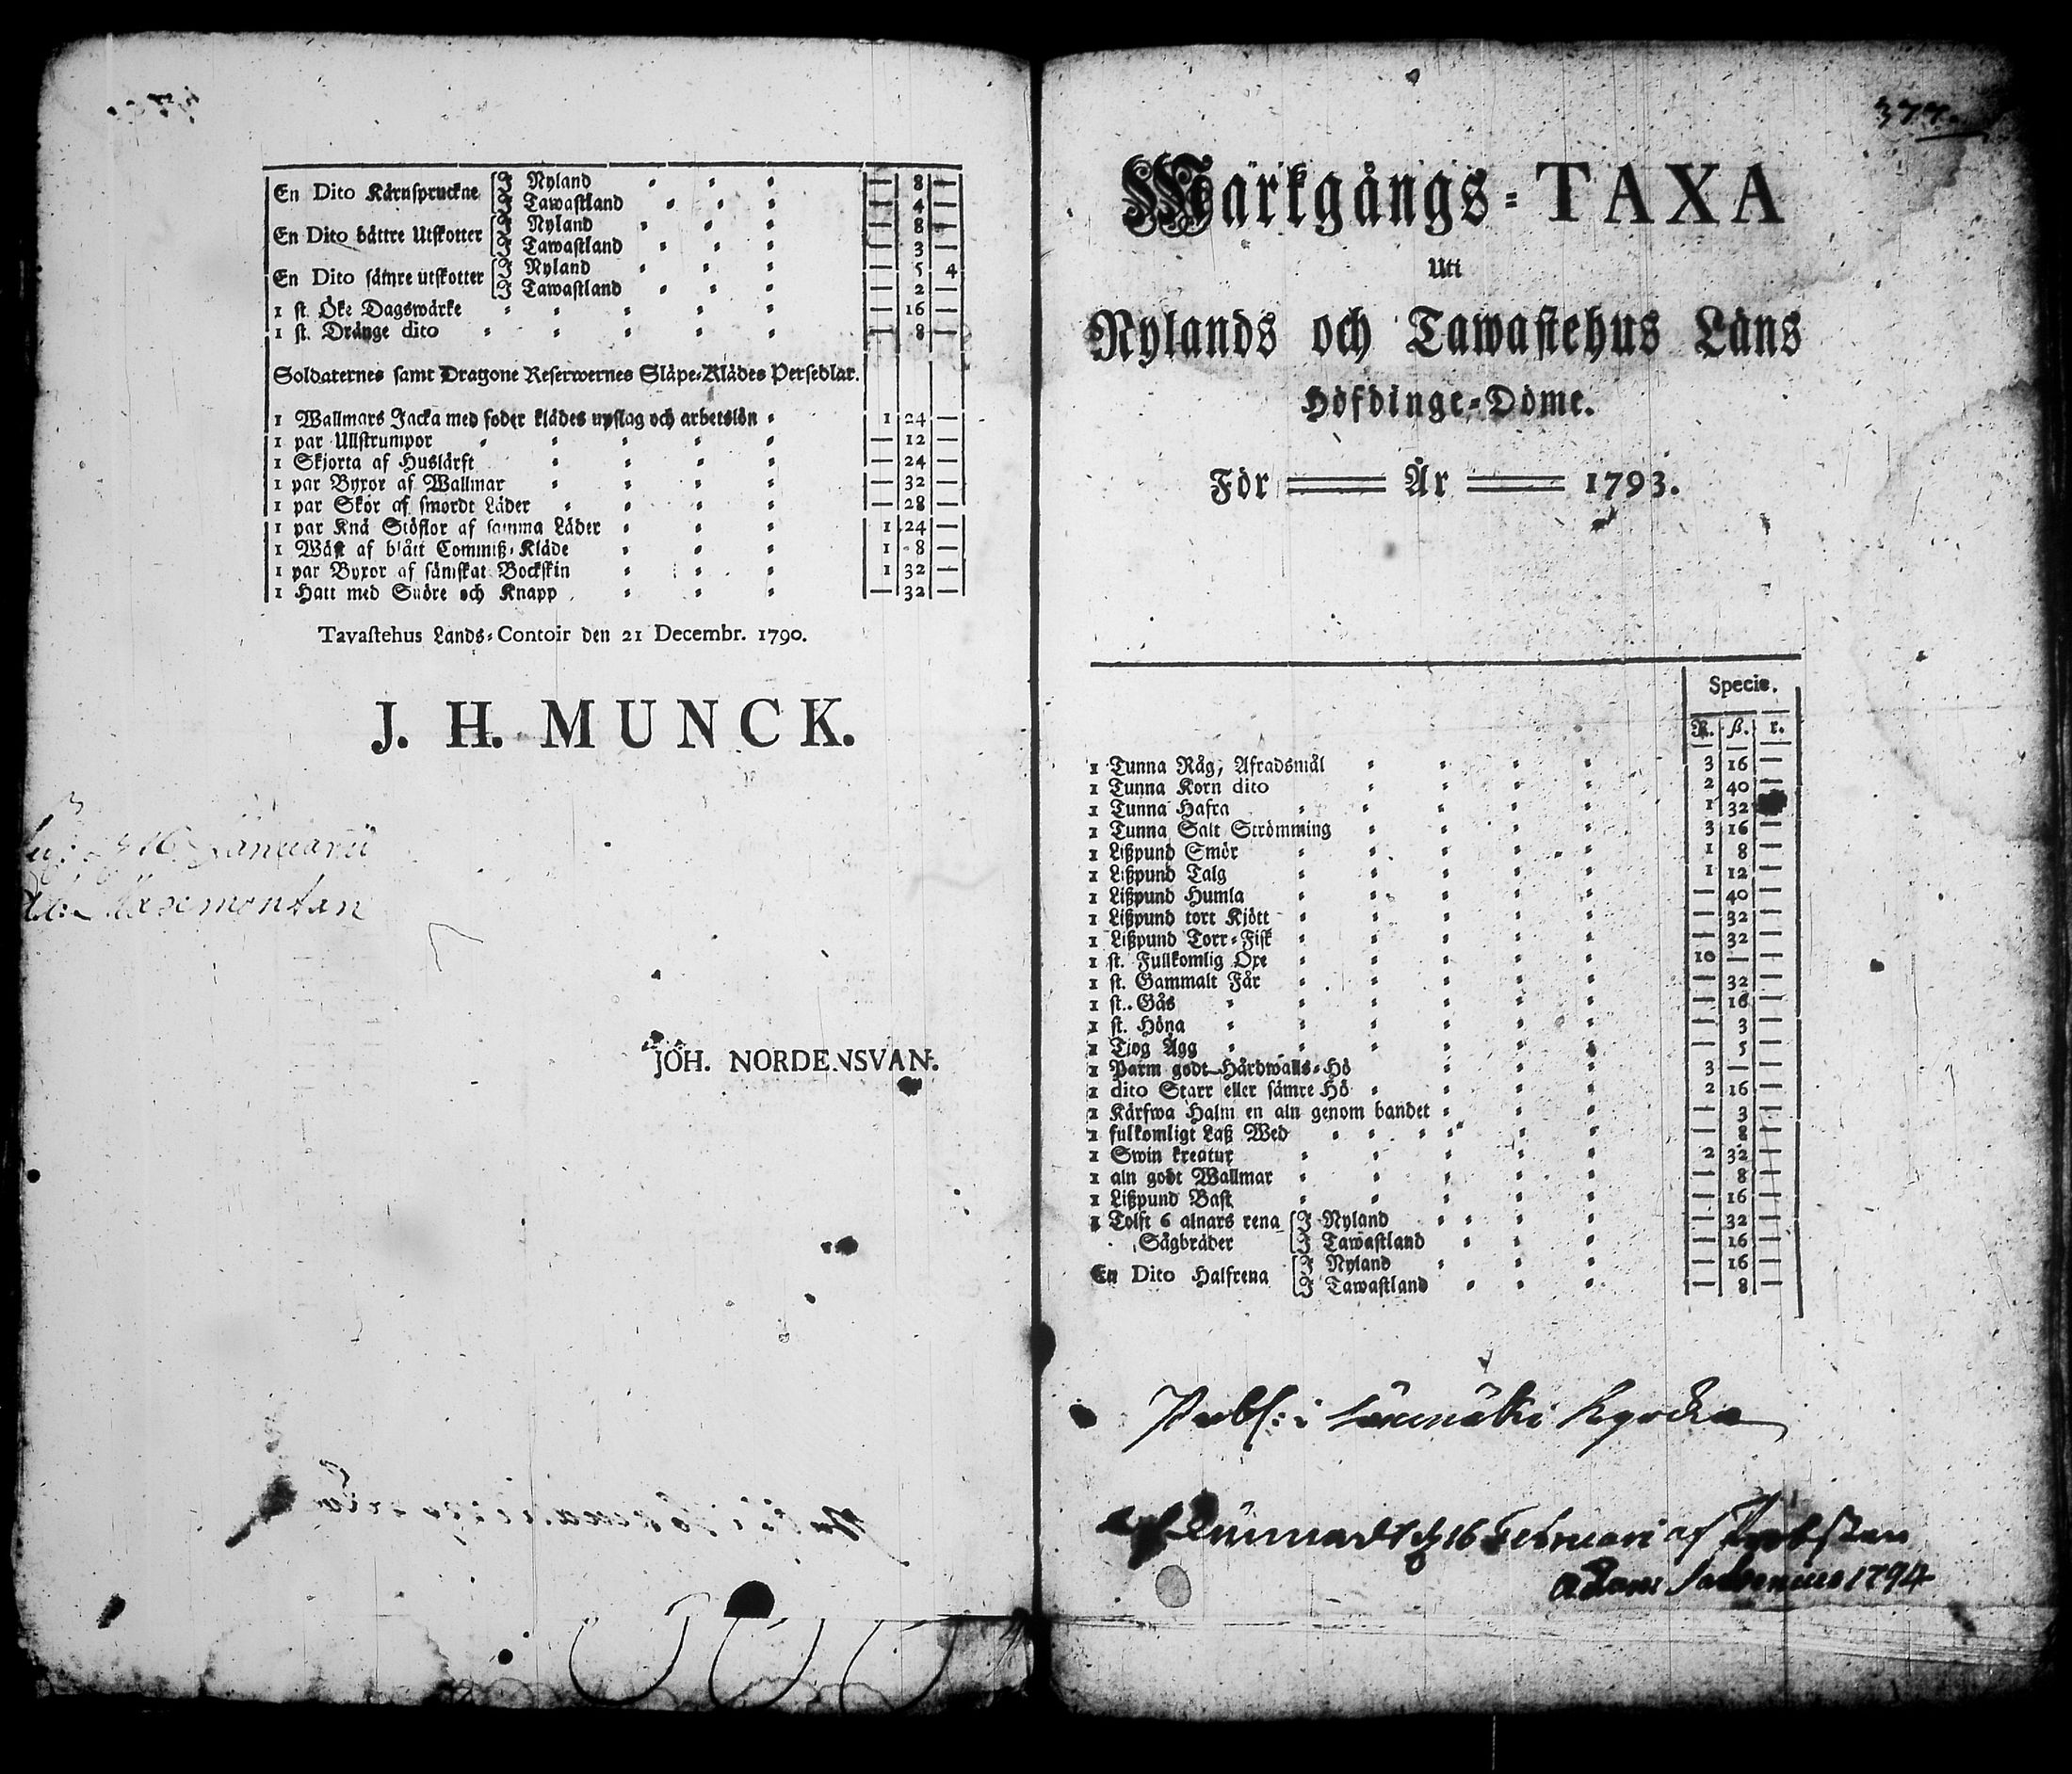 En Dito Kärnspruckne I Nyland — 8 —
I Tawastland — 4 —
En Dito bättre Utskotter I Nyland — 8 —
I Tawastland — 3 —
En Dito sämre utskotter I Nyland — 5 4
I Tawastland — 2 —
1 st. Öke Dagswärke — 16 —
1 st. Dränge dito — 8 —
Soldaternes samt Dragone Reserwernes Släpe-Klädes Persedlar.
1 Wallmars Jacka med foder klädes upslag och arbetslön 1 24 —
1 par Ullstrumpor — 12 —
1 Skjorta af Huslärft — 24 —
1 par Byxor af Wallmar — 32 —
1 par Skor af smordt Läder — 28 —
1 par Knä Stöflor af samma Läder 1 24 —
1 Wäst af blått Commiß-Kläde 1 8 —
1 par Byxor af sämskat Bockskin 1 32 —
1 Hatt med Snöre och Knapp — 32 —
Tavastehus Lands-Contoir den 21 Decembr. 1790.
J. H. MUNCK.
16 Januarii
JOH. NORDENSVAN.
377.
Markgångs-TAXA
Uti
Nylands och Tawastehus Läns
Höfdinge-Döme.
För År 1793.
Specie.
R. ß. r.
1 Tunna Råg, Afradsmål 3 16 —
1 Tunna Korn dito 2 40
1 Tunna Hafra 1 32
1 Tunna Salt Strömming 3 16 —
1 Lißpund Smör 1 8 —
1 Lißpund Talg 1 12 —
1 Lißpund Humla — 40 —
1 Lißpund tort Kjött — 32 —
1 Lißpund Torr-Fisk — 32 —
1 st. Fullkomlig Oxe 10 — —
1 st. Gammalt Får — 32 —
1 st. Gås — 16 —
1 st. Höna — 3 —
1 Tjog Ägg — 5 —
1 Parm godt Hårdwalls-Hö 3 — —
1 dito Starr eller sämre Hö 2 16 —
1 Kärfwa Halm en aln genom bandet — 3 —
1 fulkomligt Laß Wed — 8 —
1 Swin kreatur 2 32 —
1 aln godt Wallmar — 8 —
1 Lißpund Bast — 16 —
1 Tolft 6 alnars rena Sågbräder I Nyland — 32 —
I Tawastland — 16 —
En Dito Halfrena I Nyland — 16 —
I Tawastland — 8 —
Publ: i Kyrcka
16 Februari af
1794